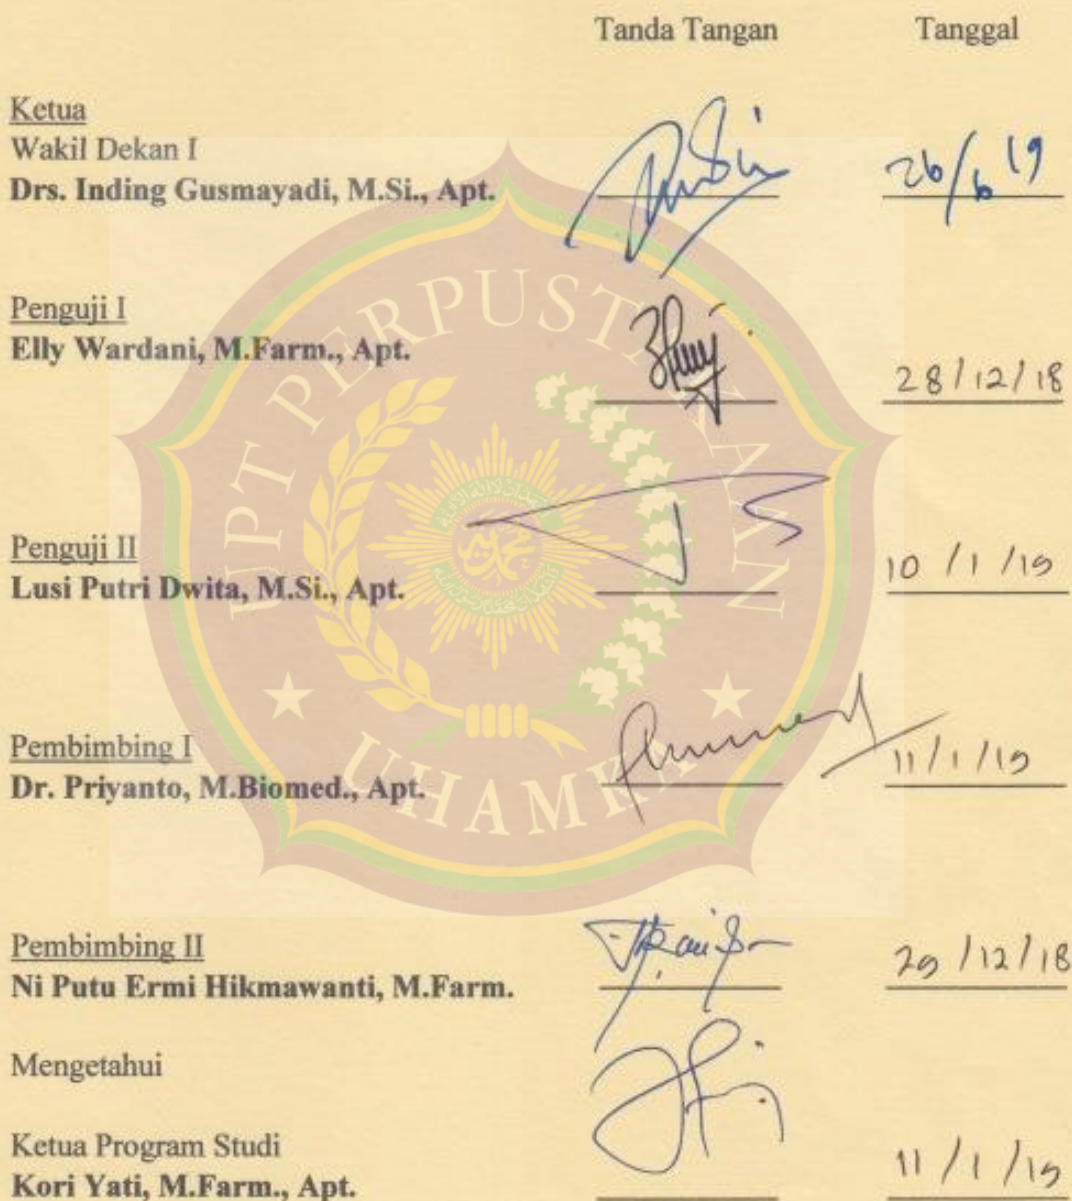 Tanda Tangan Tanggal
Ketua
Wakil Dekan I
Drs. Inding Gusmayadi, M.Si., Apt. 26/6 19
Penguji I
Elly Wardani, M.Farm., Apt. 28/12/18
Penguji II
Lusi Putri Dwita, M.Si., Apt. 10/1/19
Pembimbing I
Dr. Priyanto, M.Biomed., Apt. 11/1/19
Pembimbing II
Ni Putu Ermi Hikmawanti, M.Farm. 29/12/18
Mengetahui
Ketua Program Studi
Kori Yati, M.Farm., Apt. 11/1/19
UPT PERPUSTAKAAN
UHAMKA